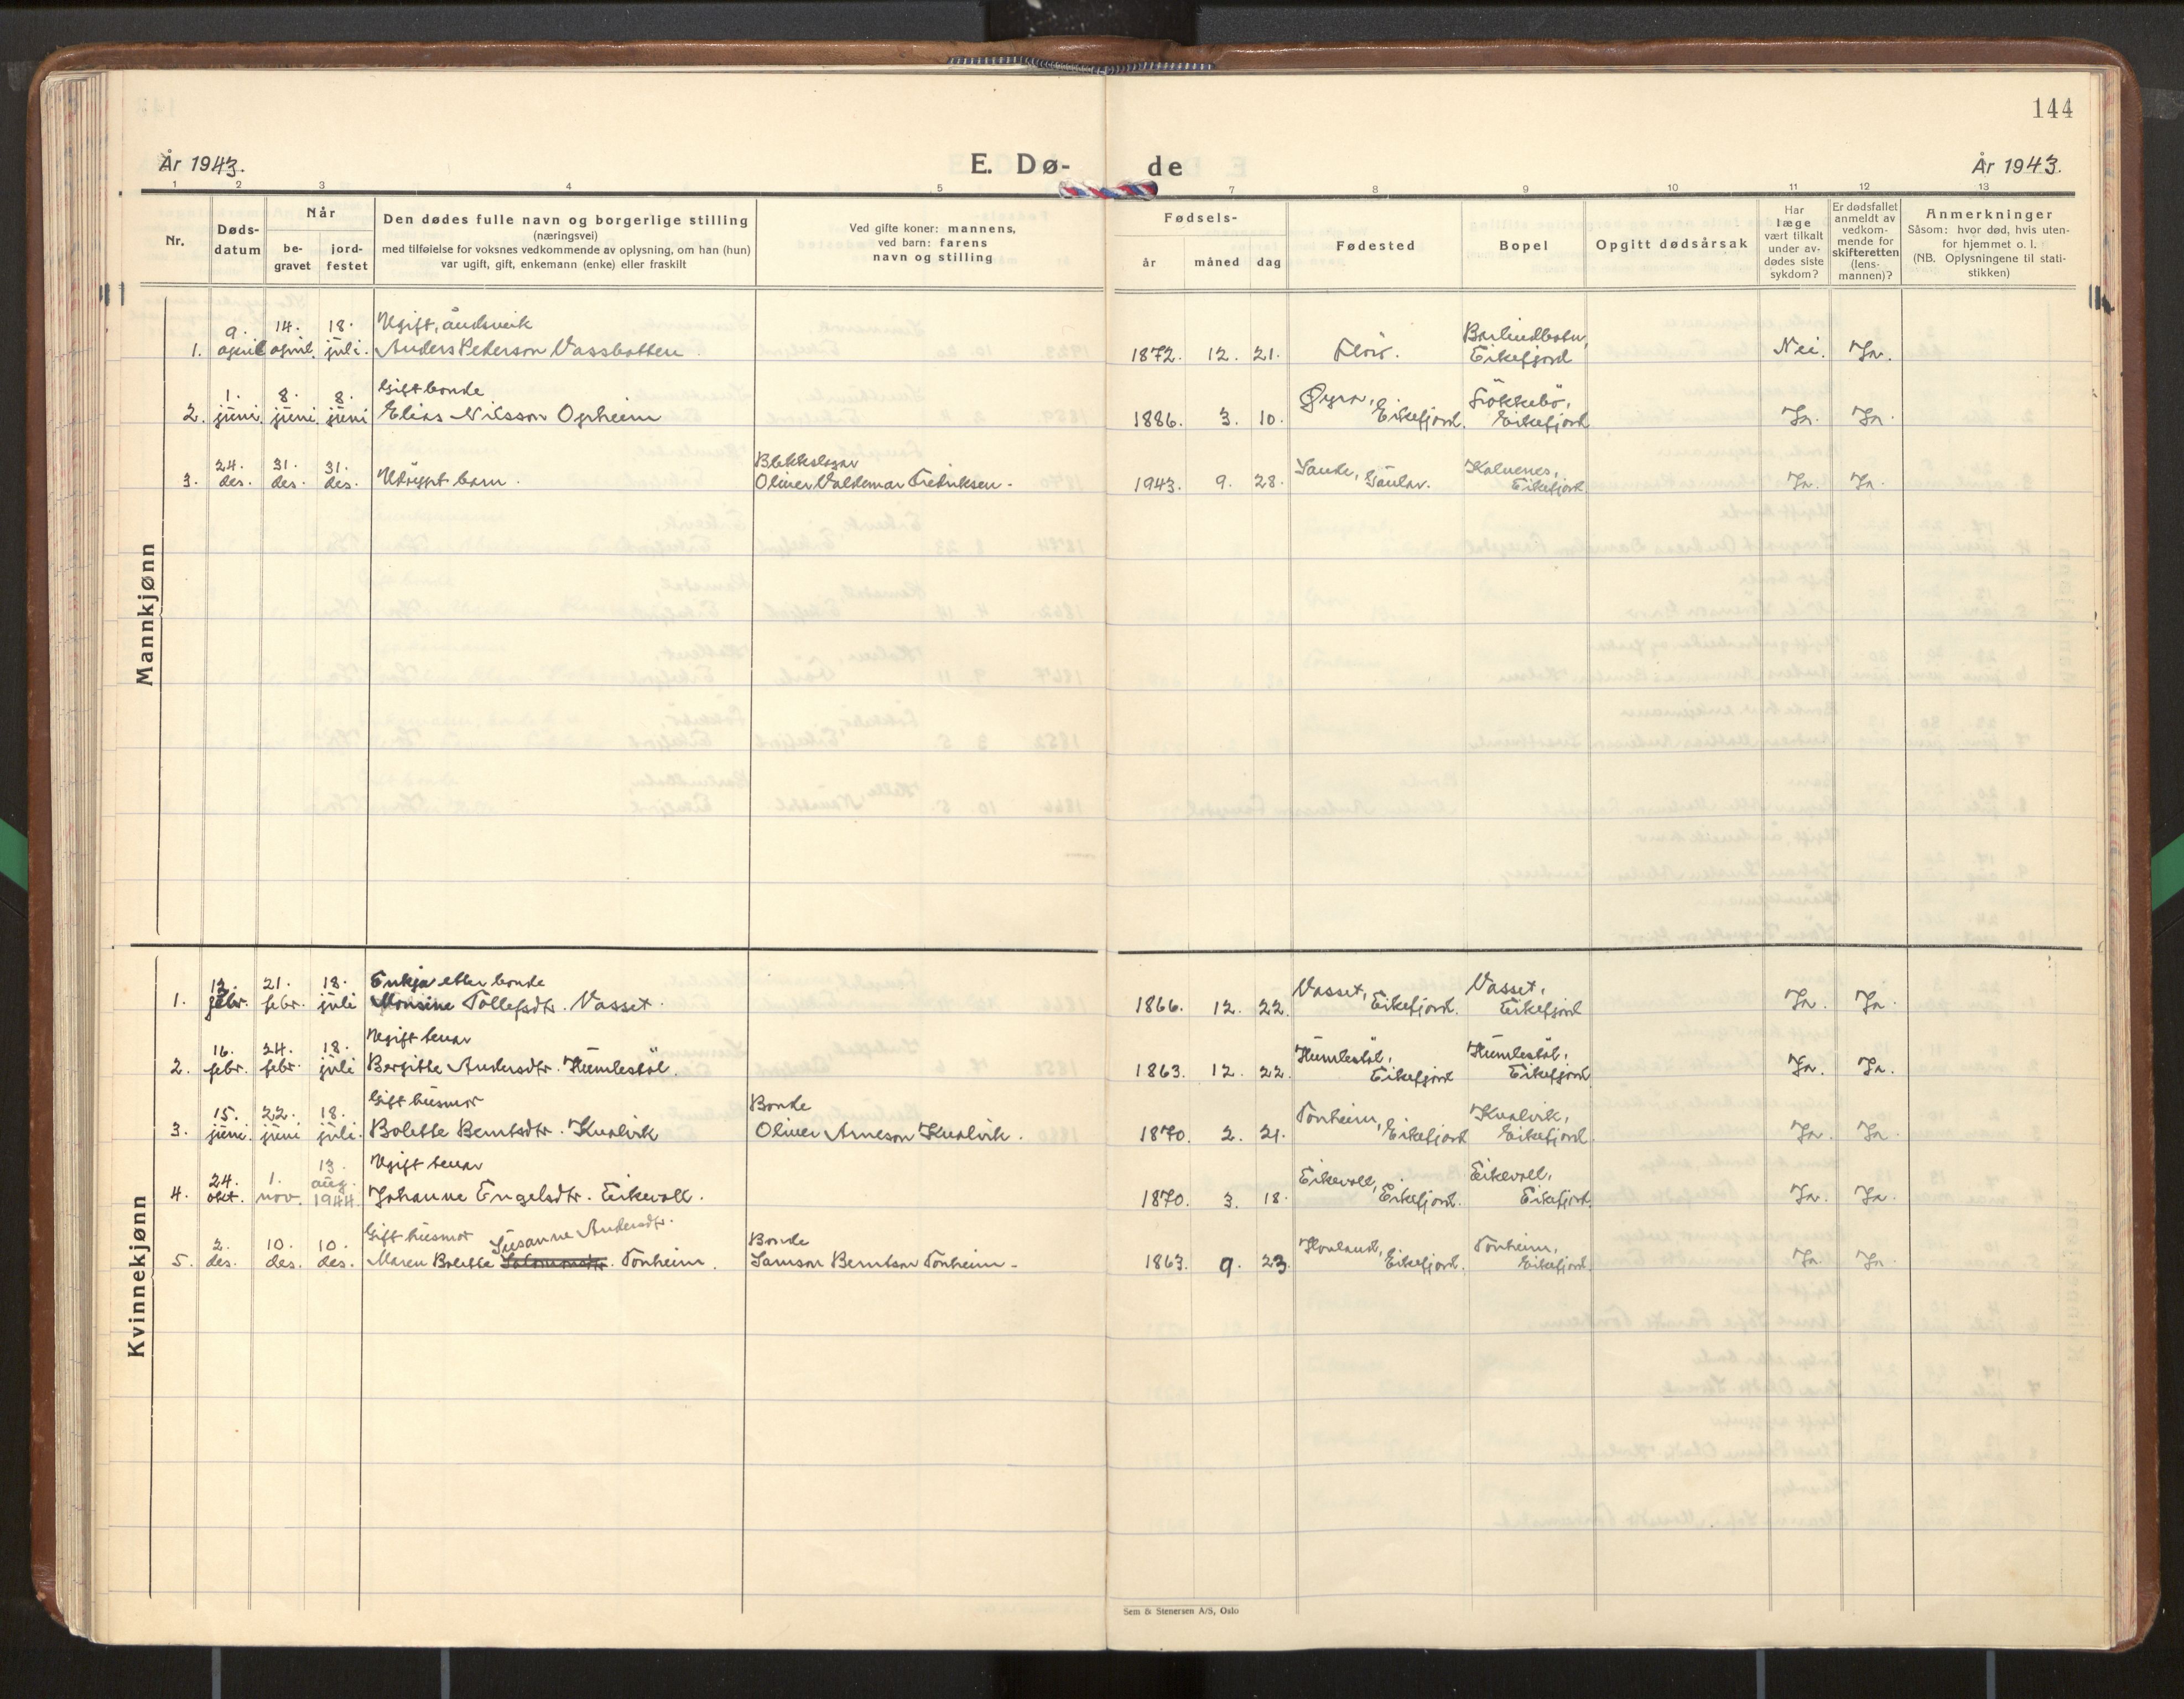 144
År 1943.
E. Dø-
de
År 1943.
1 2 3 4 5 7 8 9 10 11 12 13
Nr.
Døds-
datum
Når
be-
gravet
jord-
festet
Den dødes fulle navn og borgerlige stilling
(næringsvei)
med tilføielse for voksnes vedkommende av oplysning, om han (hun)
var ugift, gift, enkemann (enke) eller fraskilt
Ved gifte koner: mannens,
ved barn: farens
navn og stilling
Fødsels-
år måned dag
Fødested
Bopel
Opgitt dødsårsak
Har
læge
vært tilkalt
under av-
dødes siste
sykdom?
Er dødsfallet
anmeldt av
vedkom-
mende for
skifteretten
(lens-
mannen)?
Anmerkninger
Såsom: hvor død, hvis uten-
for hjemmet o. l.
(NB. Oplysningene til stati-
stikken)
Mannkjønn
9. 14. 18. Ugift, åndsveik Barlindbotn,
1. april april. juli. Anders Pederson Vassbotten 1872. 12. 21. Florø. Eikefjord Nei. Ja.
1. 8. 8. Gift bonde Øyra, Løkkebö,
2. juni. juni. juni Elias Nilsson Opheim 1886. 3. 10. Eikefjord. Eikefjord Ja. Ja.
24. 31. 31. Blekkslagar Sande, Kalvenes,
3. des. des. des. Udöypt barn. Oliver Valdemar Fredriksen. 1943. 9. 28. Gaular. Eikefjord Ja. Ja.
Kvinnekjønn
12. 21. 18. Enkja etter bonde Vasset, Vasset,
1. febr. febr. juli Monsine Tollefsdtr. Vasset. 1866. 12. 22. Eikefjord. Eikefjord Ja. Ja.
16. 24. 18. Ugift tenar Humlestöl, Humlestöl,
2. febr. febr. juli Bergitte Andersdtr. Humlestöl. 1863. 12. 22. Eikefjord Eikefjord Ja. Ja.
15. 22. 18. Gift husmor Bonde Tonheim, Kvalvik,
3. juni. juni juli. Bolette Berntsdtr. Kvalvik Oliver Arneson Kvalvik. 1870. 2. 21. Eikefjord Eikefjord. Ja. Ja.
24. 1. 13. aug. Ugift tenar Eikevoll, Eikevoll,
4. okt. nov. 1944. Johanne Engelsdtr. Eikevoll. 1870. 3. 18. Eikefjord. Eikefjord. Ja. Ja.
2. 10. 10. Gift husmor Susanne Andersdtr. Bonde Hovland, Tonheim,
5. des. des. des. Maren Bolette Salomonsdtr. Tonheim. Samson Berntson Tonheim. 1863. 9. 23. Eikefjord. Eikefjord. Ja. Ja.
Sem & Stenersen A/S, Oslo